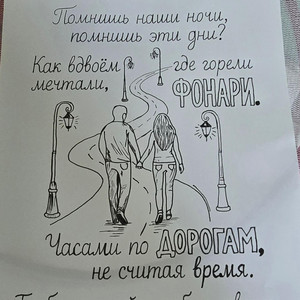 Помнишь наши ночи,
помнишь эти дни?
Как вдвоём где горели
мечтали, ФОНАРИ.
Часами по ДОРОГАМ,
не считая время.